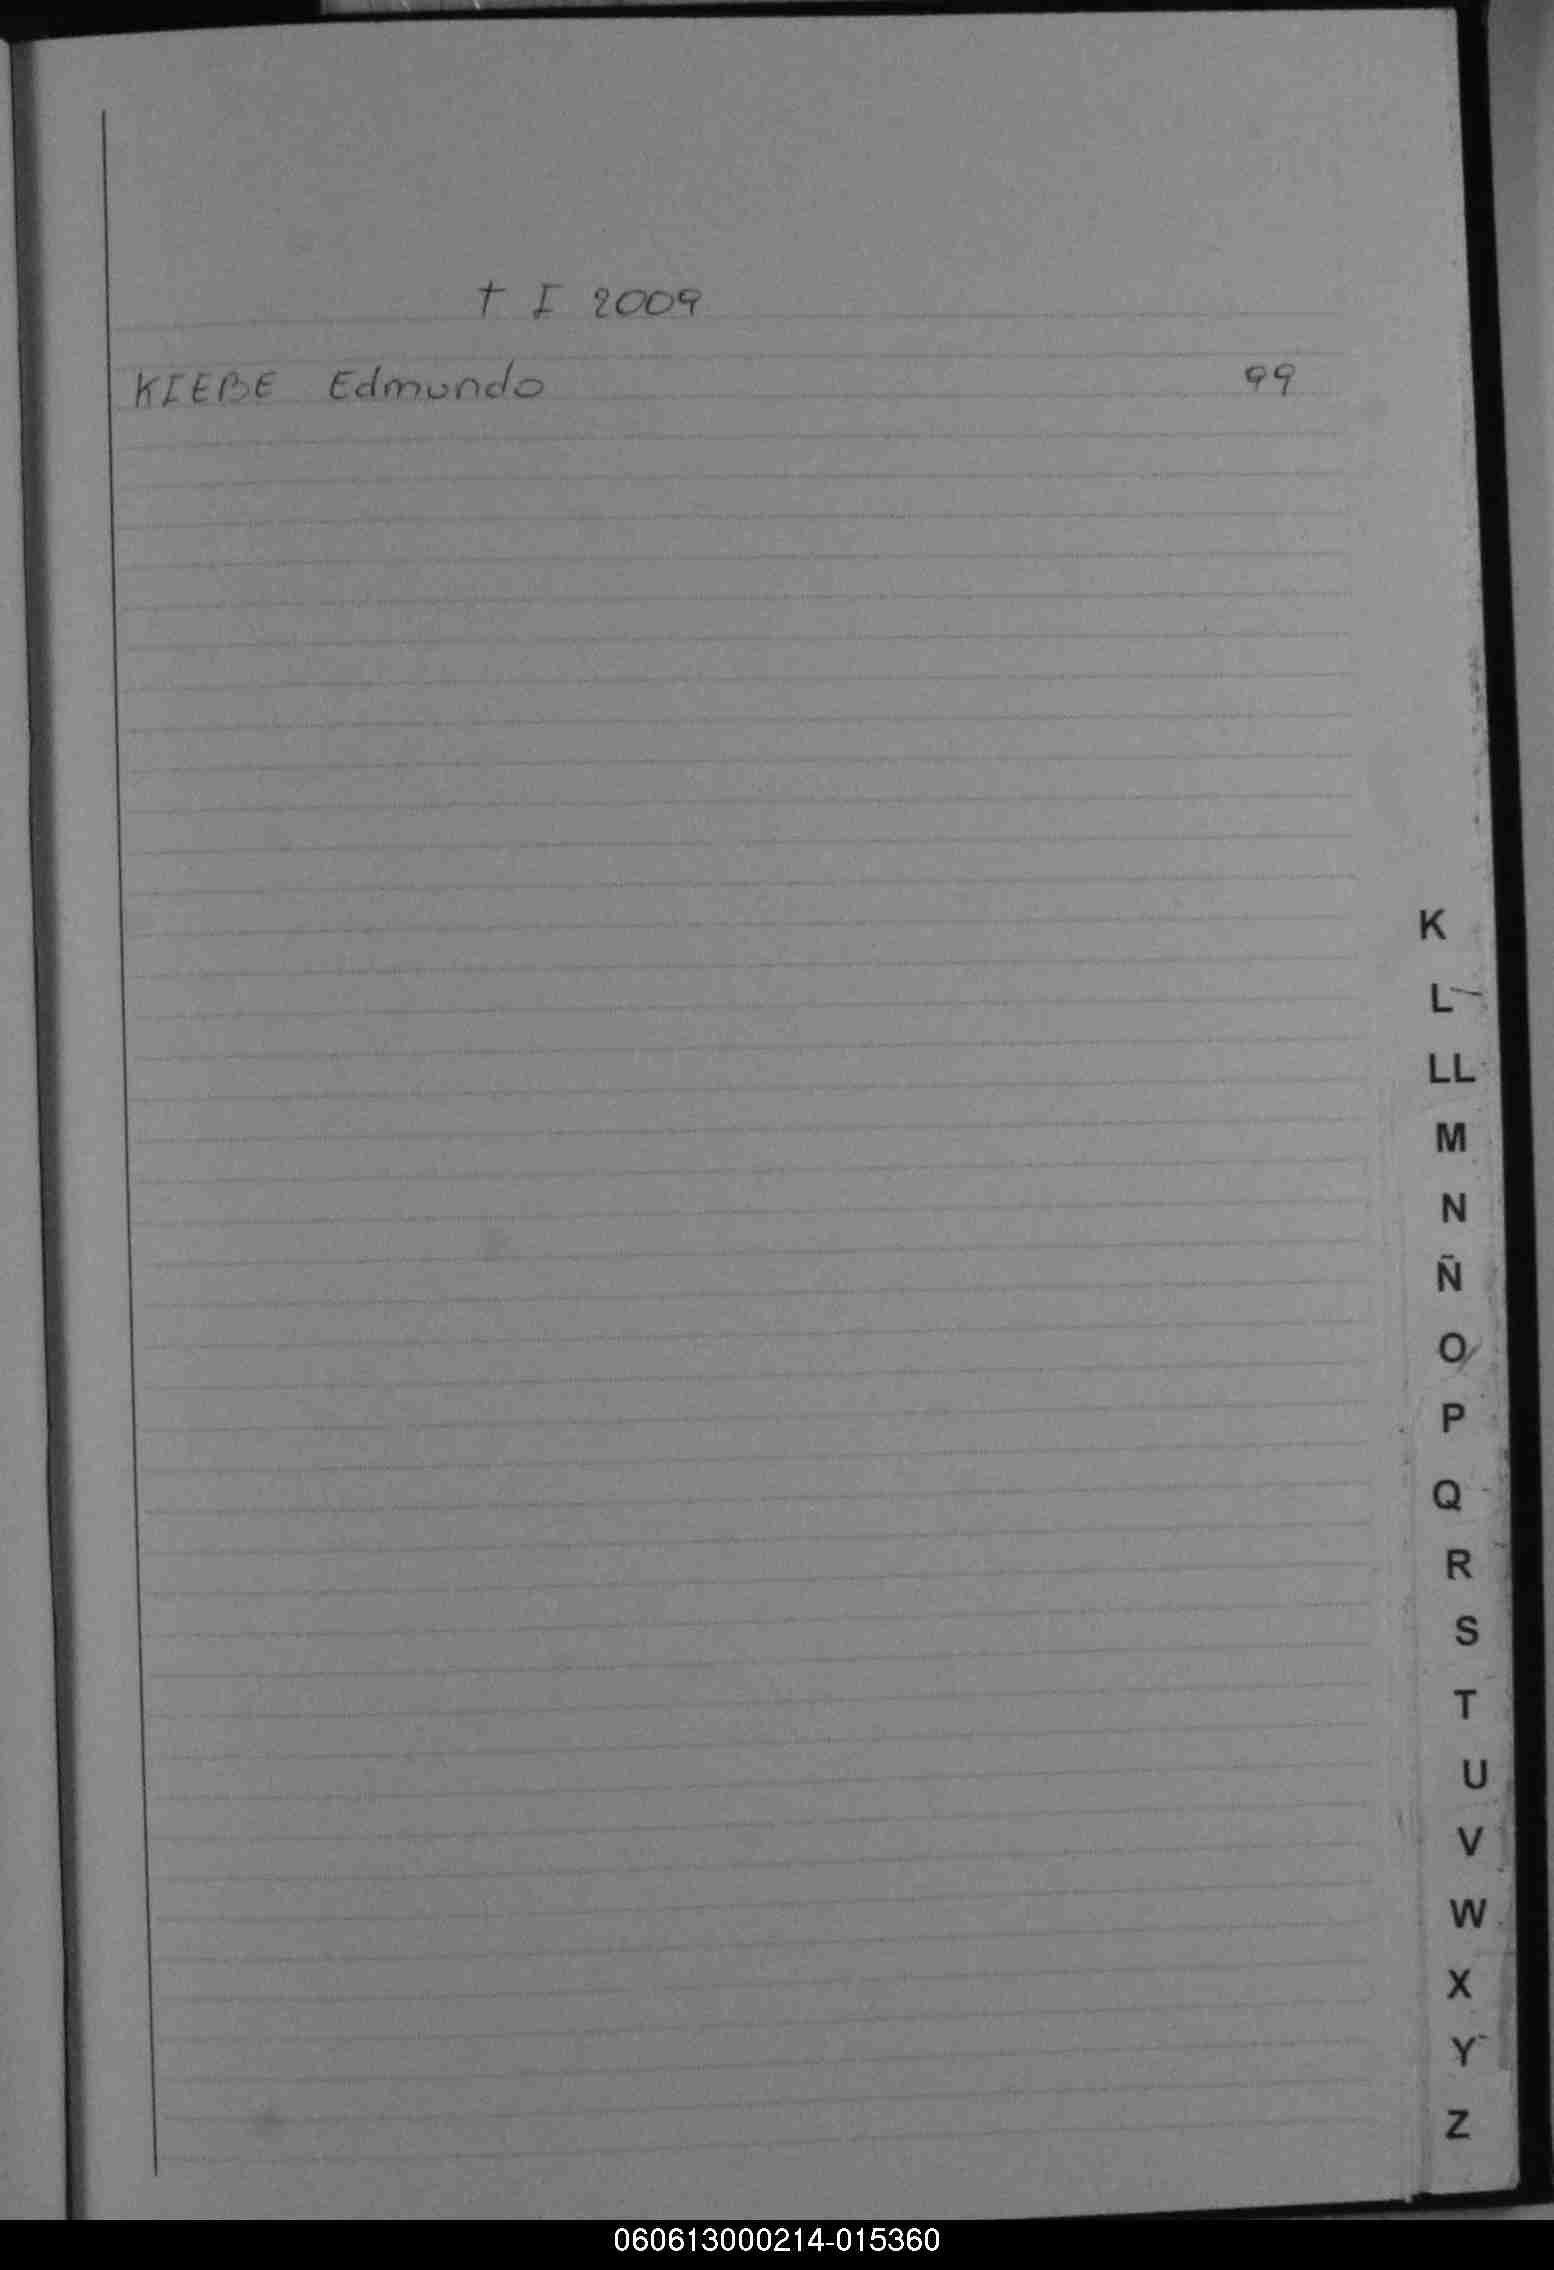 T I 2009
KIEBE Edmundo 99
K
L
LL
M
N
Ñ
O
P
Q
R
S
T
U
V
W
X
Y
Z
060613000214-015360